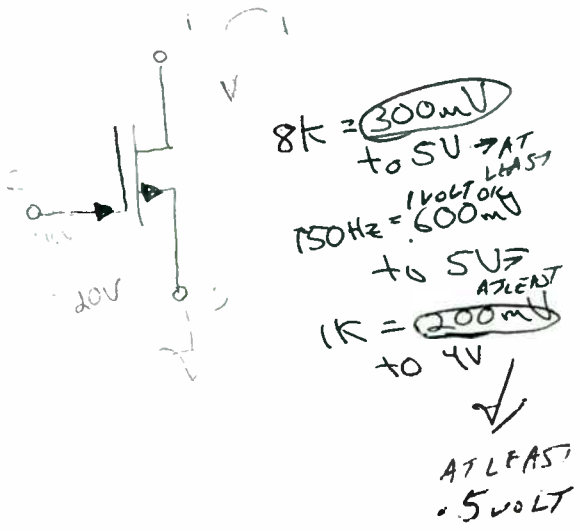 V
8K = 300mV
to 5V → AT
LEAST
1 VOLT OK
150Hz = .600mV
to 5V →
AT LEAST
1K = 200mV
to 4V
20V
AT LEAST
.5 VOLT